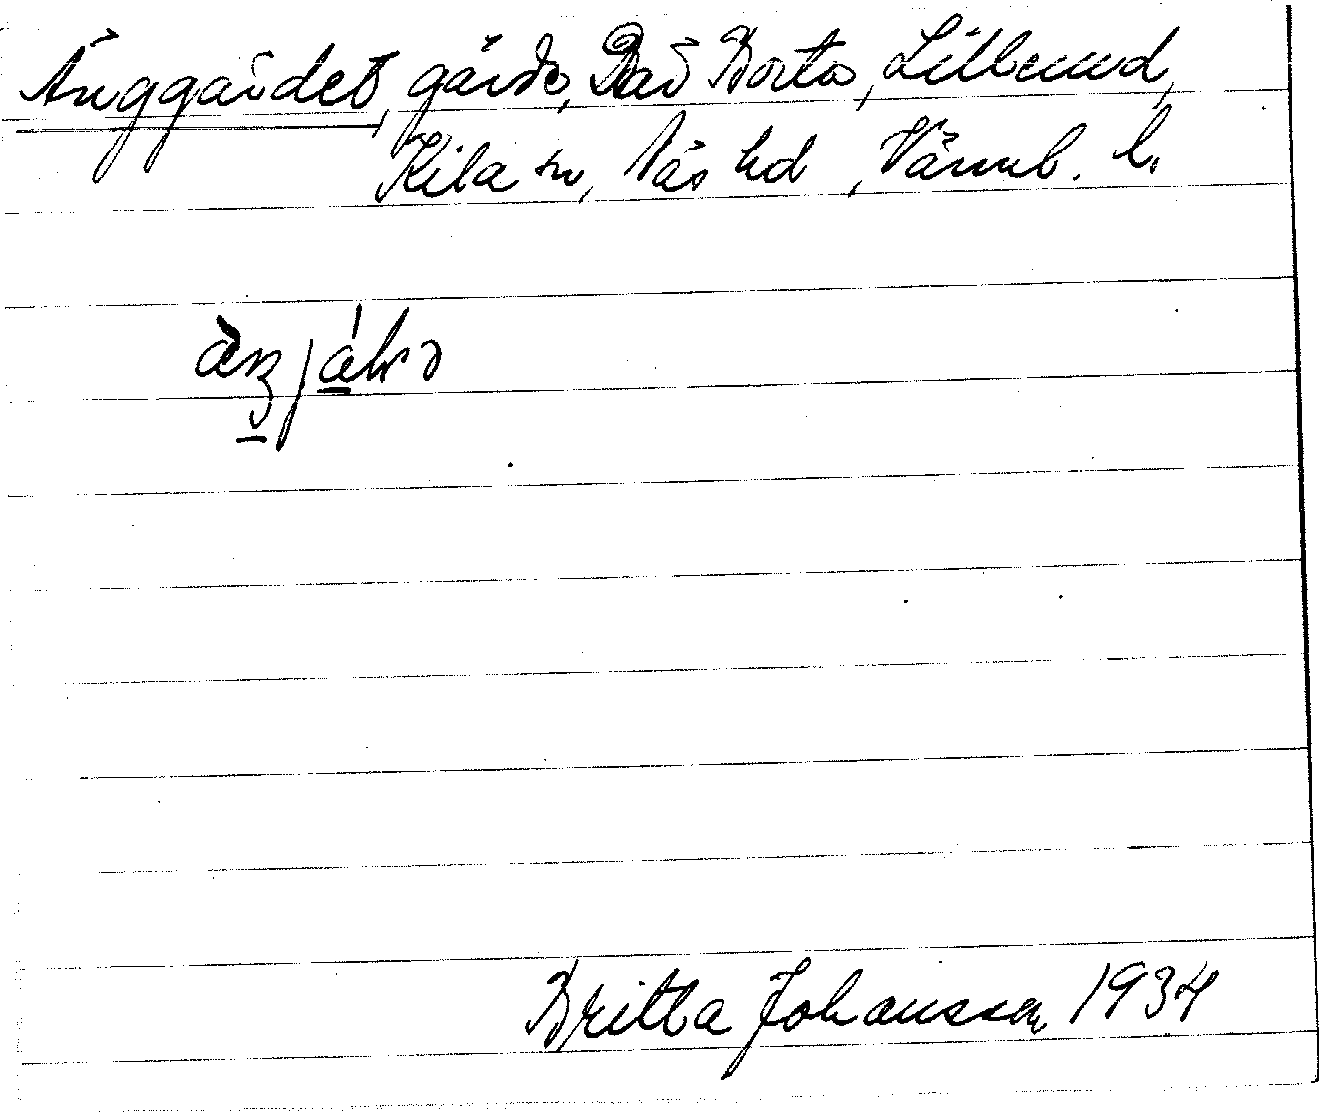 Änggärdet, gärde, Bad Bortos, Lillemud,
Kila sn, Näs hd, Värml. l.
Britta Johansson 1934